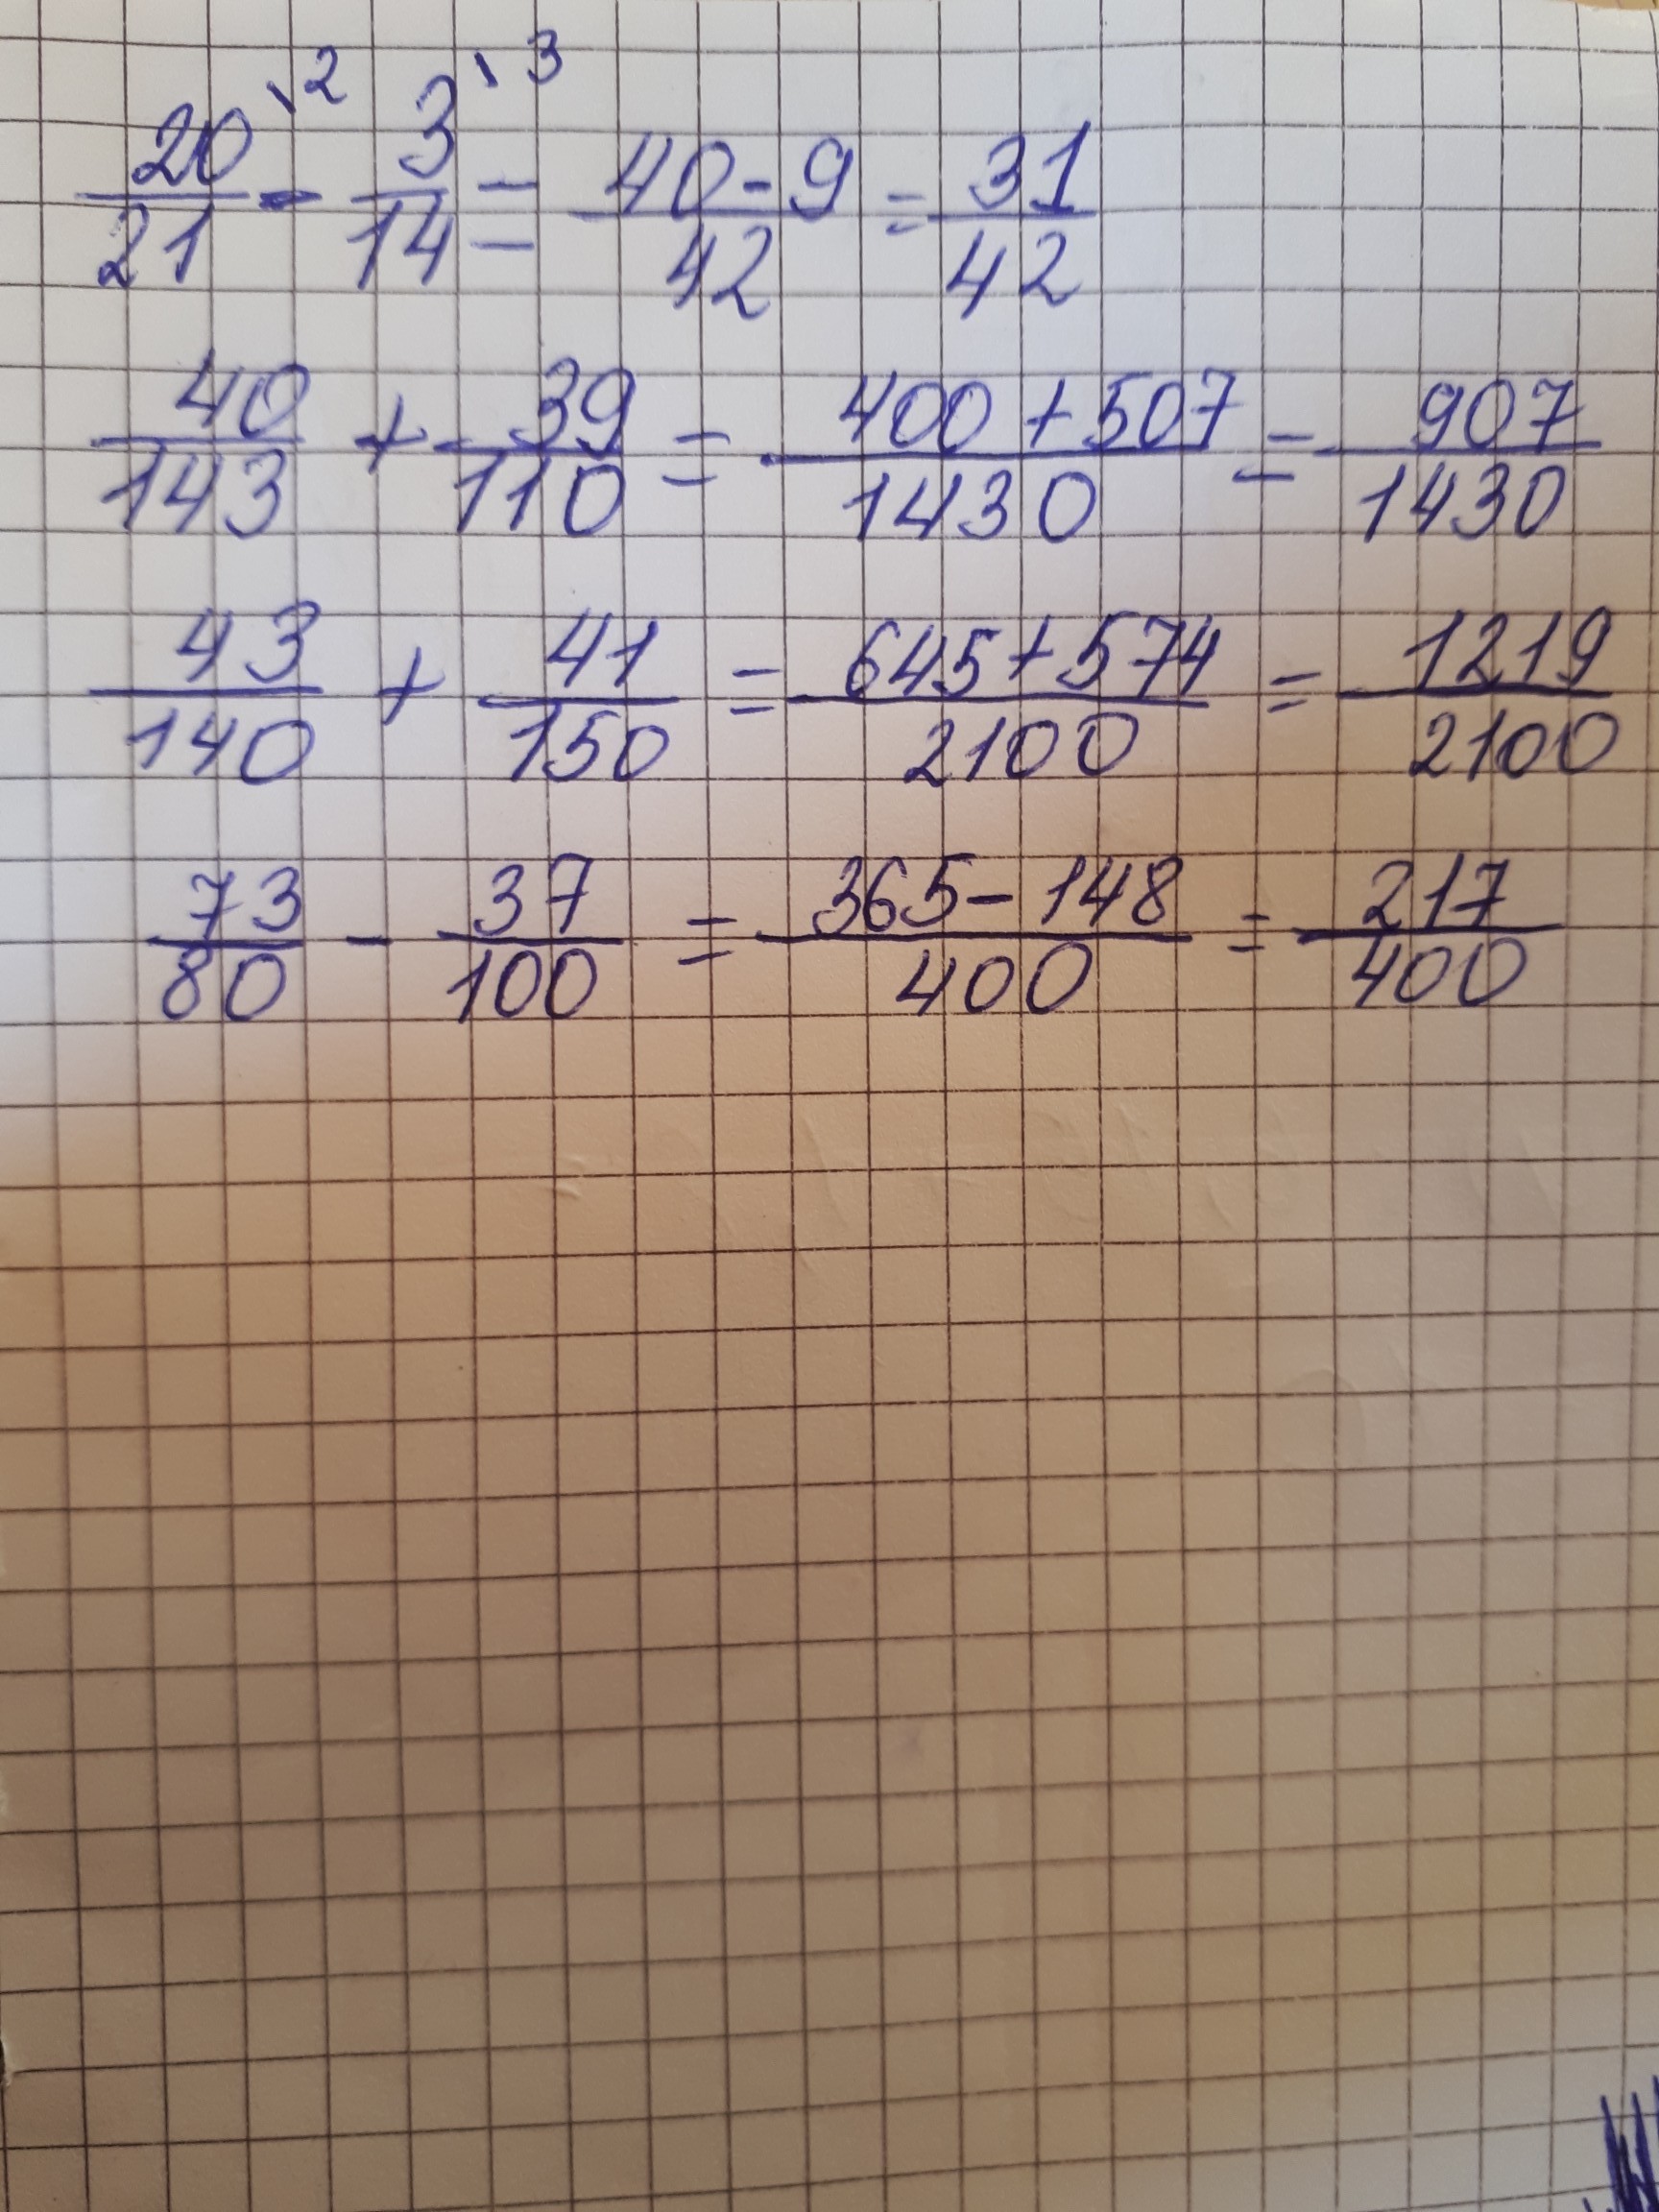 20/21 \2 - 3/14 \3 = 40-9/42 = 31/42
40/143 + 39/110 = 400+507/1430 = 907/1430
43/140 + 41/150 = 645+574/2100 = 1219/2100
73/80 - 37/100 = 365-148/400 = 217/400